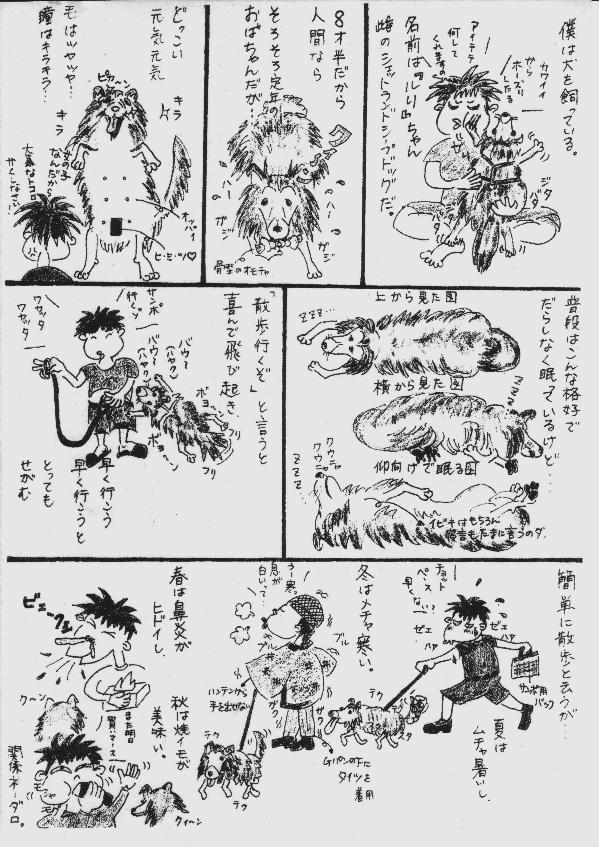 僕は犬を飼っている。
カワイイ
から
ホーズリ
したる
アイテテ
何して
くれますの
名前は『ルリ』ちゃん
雌のシェットランドシープドッグだ。
ジタ
バタ
ジタ
バタ
8才半だから
人間なら
そろそろ定年の
おばちゃんだが…
ハー
ハー
ガジ
ガジ
骨型のオモチャ
どっこい
元気元気
毛はツヤツヤ…
瞳はキラキラ…
ピカーン
キラ
キラ
女の子
なんだから
大事なトコロ
かくしなさい
オッパイ
ヒ・ミ・ツ♡
普段はこんな格好で
だらしなく眠っているけど…
上から見た図
ZZZ…
横から見た図
ZZZZ
仰向けで眠る図
クウニャ
クウニャ
ZZZ
イビキはもちろん
寝言もたまに言うのダ.
「散歩行くぞ」と言うと
喜んで飛び起き、
サンポ
行くゾ
ワカッタ
ワカッタ
バウ
ハヤク
バウ
ハヤクン
ポヨヘン
ポヨヘン
フリ
フリ
早く行こう
早く行こうと
とっても
せがむ
簡単に散歩と云うが…
チョット
ペース
早くない?
ゼェ
ハァ
ゼェ
ハァ
サンポ用
バック
夏は
ムチャ暑いし、
テク
テク
スタ
冬はメチャ寒い。
うー寒っ
息が
白いって…
ブル
ブル
ハンテンから
手を出せない
ガク
ガク
Gパンの下に
タイツを
着用
テク
テク
春は鼻炎が
ヒドイし、
ビェークション
また明日
買いマース
クーン
秋は焼イモが
美味い。
モシャ
モグ
クイーン
関係ネーダロ。